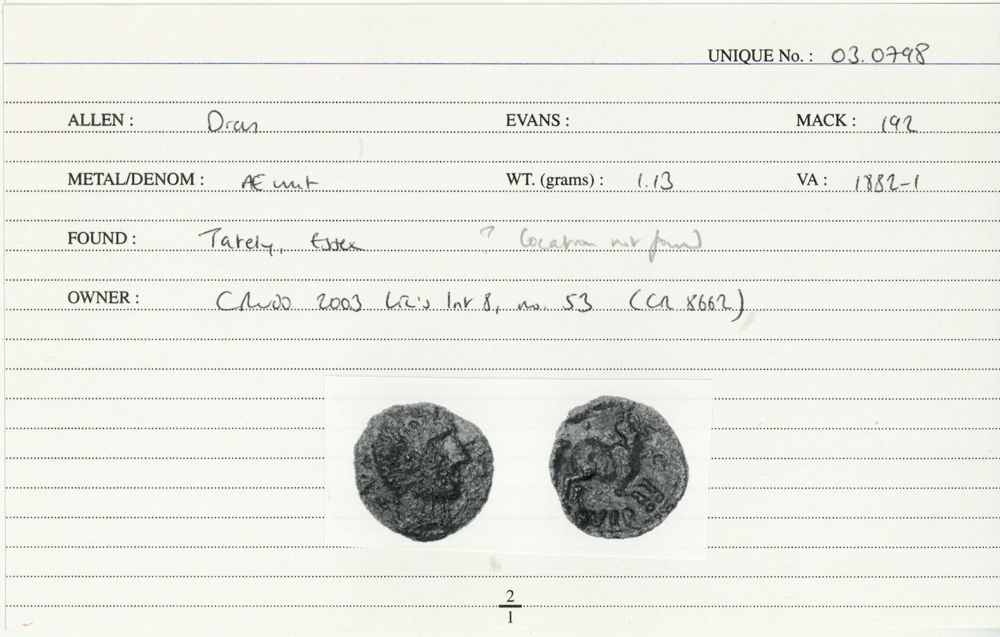 UNIQUE No. : 03.0798
ALLEN : EVANS : MACK : 192
METAL/DENOM : Æ unit WT. (grams) : 1.13 VA : 1882-1
FOUND : Essex ? location not found
OWNER : 2003 8, no. 53 (CR 8662)
2
1